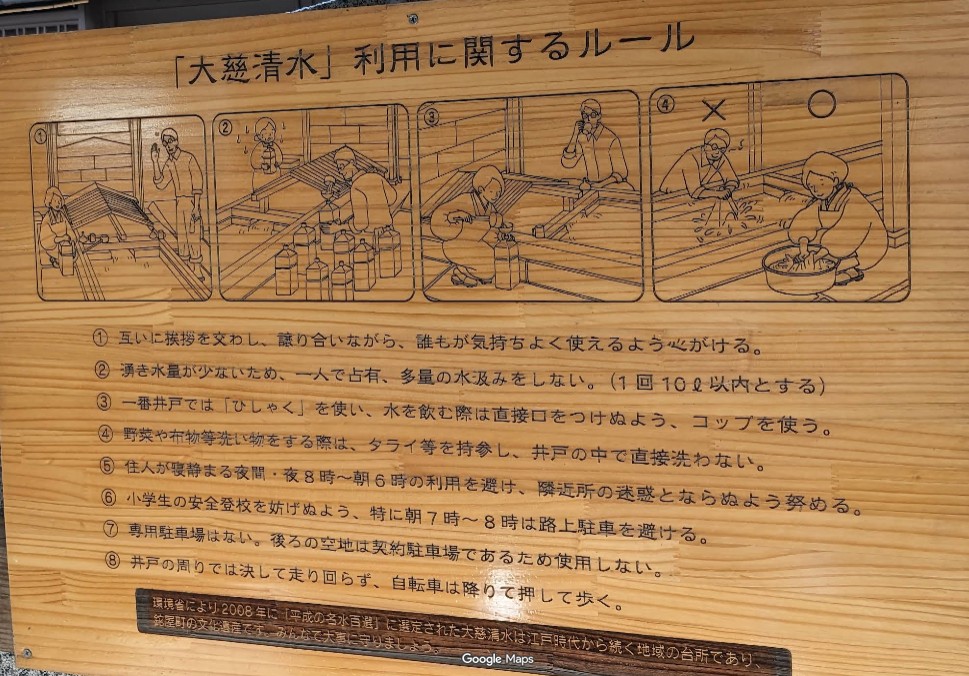 「大慈清水」利用に関するルール
① ② ③ ④ × ○
① 互いに挨拶を交わし、譲り合いながら、誰もが気持ちよく使えるよう心がける。
② 湧き水量が少ないため、一人で占有、多量の水汲みをしない。(1回10ℓ以内とする)
③ 一番井戸では「ひしゃく」を使い、水を飲む際は直接口をつけぬよう、コップを使う。
④ 野菜や布物等洗い物をする際は、タライ等を持参し、井戸の中で直接洗わない。
⑤ 住人が寝静まる夜間・夜8時～朝6時の利用を避け、隣近所の迷惑とならぬよう努める。
⑥ 小学生の安全登校を妨げぬよう、特に朝7時～8時は路上駐車を避ける。
⑦ 専用駐車場はない。後ろの空地は契約駐車場であるため使用しない。
⑧ 井戸の周りでは決して走り回らず、自転車は降りて押して歩く。
環境省により2008年に「平成の名水百選」に選定された大慈清水は江戸時代から続く地域の台所であり、
鉈屋町の文化遺産です。みんなで大事に守りましょう。
Google Maps